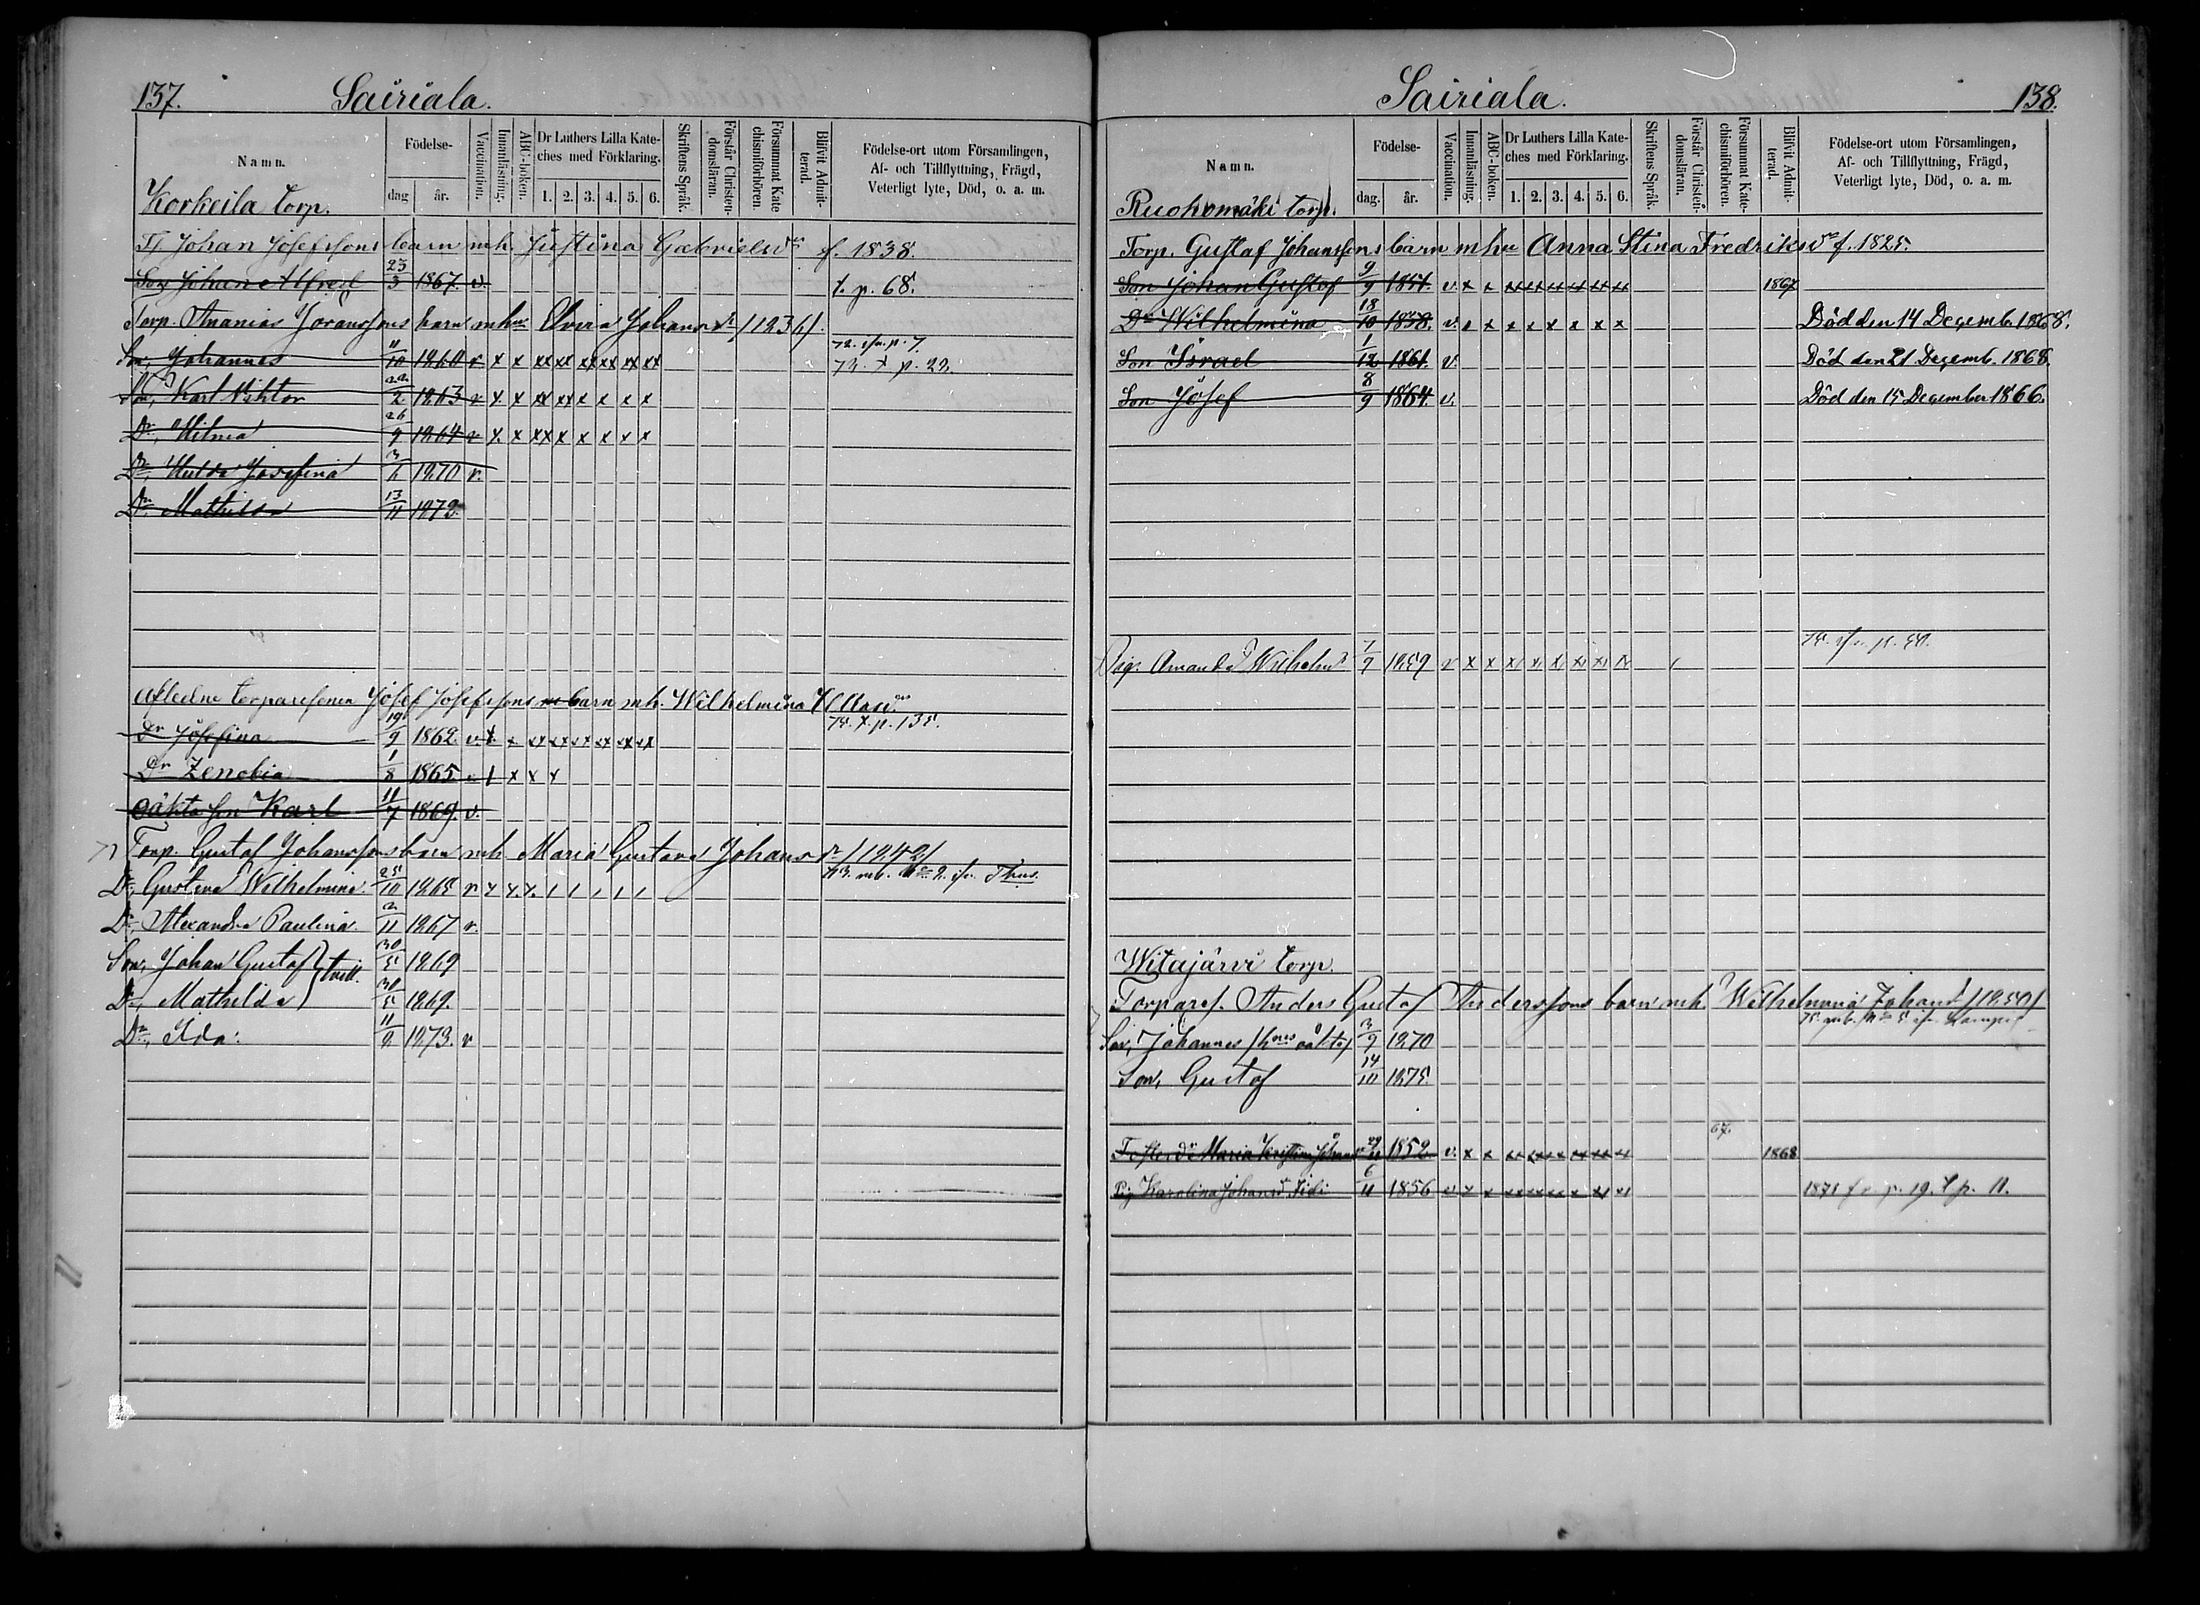 137. Sairiala.
Namn. Födelse- dag år. Vaccination. Innanläsning. ABC-boken. Dr Luthers Lilla Kateches med Förklaring. 1. 2. 3. 4. 5. 6. Skriftens Språk. Förstår Christendomsläran. Försummat Katechismiförhören. Blifvit Admitterad. Födelse-ort utom Församlingen, Af- och Tillflyttning, Frägd, Veterligt lyte, Död, o. a. m.
Korkeila torp.
Johan Josefssons barn mh. Justina Gabrielsdr f. 1838.
Son Johan Alfred 23/3 1867. v. t. p. 68.
Torp. Ananias barn mhu Johansdr
Son, Johannes 11/10 1860 v x x xx xx xx xx xx xx 73. t p. 23.
Son, Karl Viktor 22/2 1863 v x x xx xx x x x x
Dr, Wilma 26/9 1864 v x x xx x x x x x
Dr, Hulda Josefina 3/6 1870 v.
Dr. Mathilda 13/11 1873.
Aflidne torparesonen Josef Josefssons barn mh. Wilhelmina
Dr Josefina 19/9 1862. v. x. x xx xx xx xx xx xx 75. t. p. 135.
Dr Zenobia 1/8 1865. v 1 x x x
oäkta son Karl 11/7 1869. v.
Torp. Gustaf Johanssons barn mh. Maria Gustava Johansdr /1842/
Dr, Gustava Wilhelmina 25/10 1865 v x x x. / / / / / /
Dr, Alexandra Paulina 2/11 1867 v.
Son, Johan Gustaf } tvill. 30/5 1869
Dr, Mathilda } 30/5 1869.
Dr, Ida. 11/2 1873. v
Sairiala. 138.
Namn. Födelse- dag. år. Vaccination. Innanläsning. ABC-boken. Dr Luthers Lilla Kateches med Förklaring. 1. 2. 3. 4. 5. 6. Skriftens Språk. Förstår Christendomsläran. Försummat Katechismiförhören. Blifvit Admitterad. Födelse-ort utom Församlingen, Af- och Tillflyttning, Frägd, Veterligt lyte, Död, o. a. m.
Ruohomäki torp.
Torp. Gustaf Johanssons barn mhu Anna Stina Fredriksdr f. 1825.
Son Johan Gustaf 9/9 1851. v. x x xx xx xx xx xx xx 1867
Dr Wilhelmina 18/10 1858. v. x x x x x x x x Död den 14 Decemb. 1868.
Son Israel 1/12 1861. v. Död den 21 Decemb. 1868.
Son Josef 8/9 1864. v. Död den 15 December 1866.
Pig. Amanda Wilhelmsdr 7/9 1859 v x x x x x x x x /
Witajärvi torp.
Torpares. Anders Gustaf Anderssons barn mh. Wilhelmina Johansdr /1850/
Son, Johannes /hnes oäkta/ 3/9 1870
Son, Gustaf 14/10 1875.
67.
Fosterdr Maria Kristina 1852. v. x x xx xx x xx xx xx 1868
Pig Karolina Johansd. 6/11 1856 v x x xx xx xx x xx x1 p. 19. t p. 11.